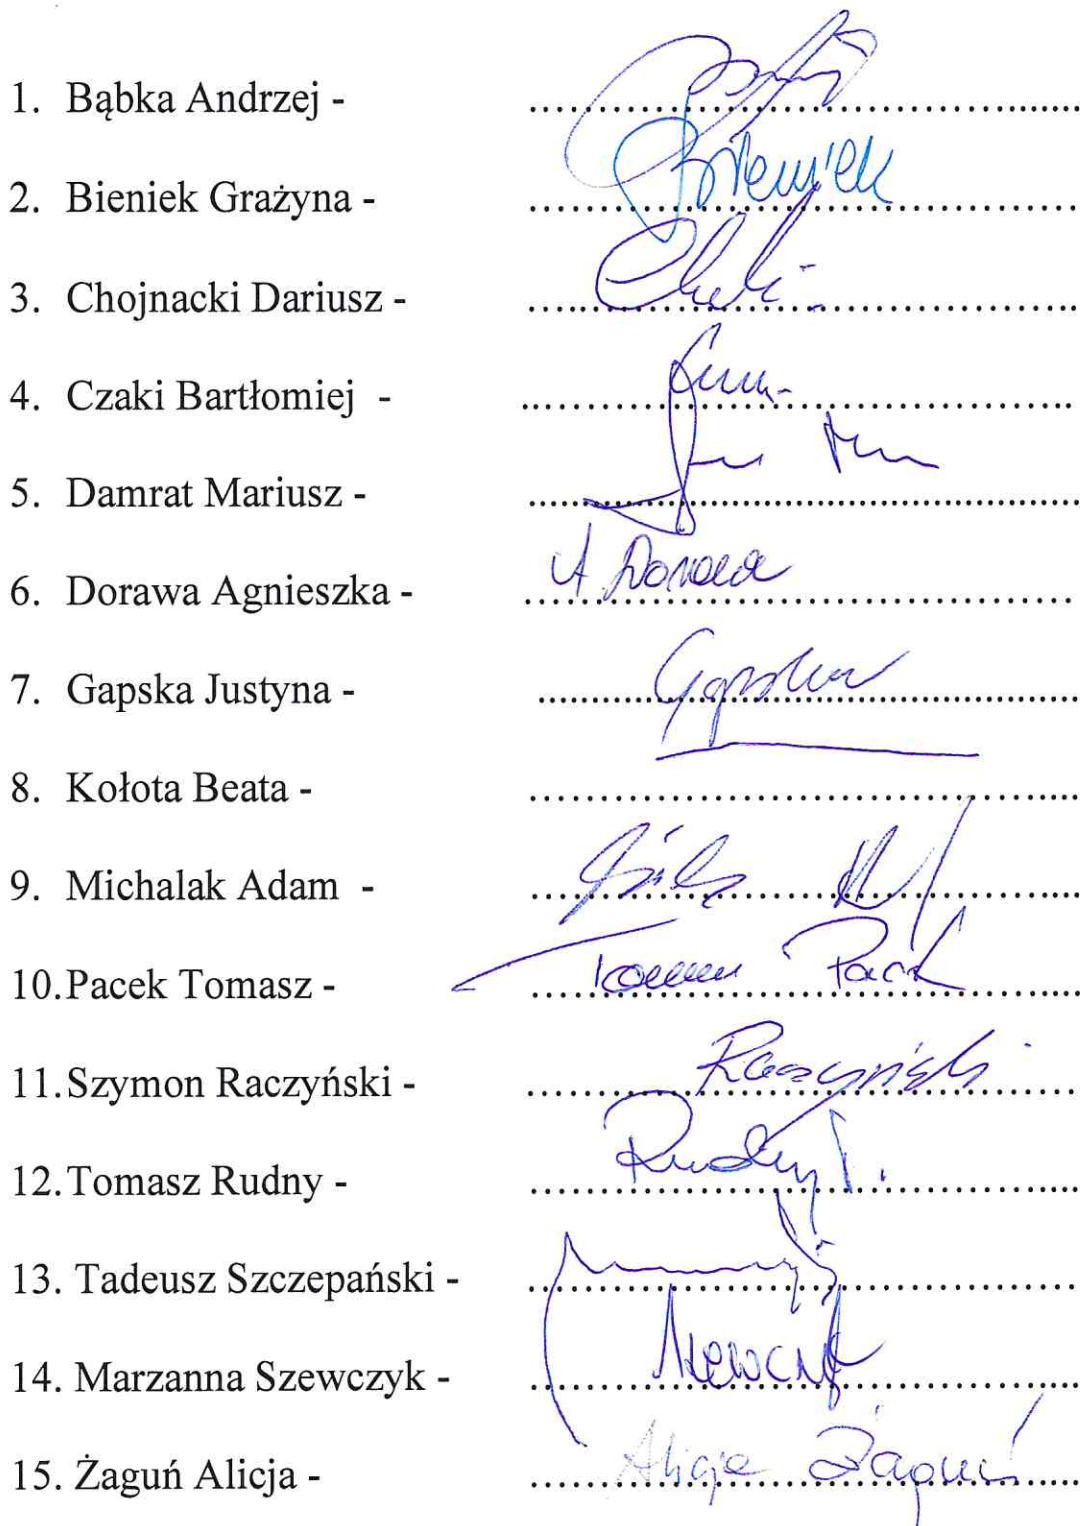 1. Bąbka Andrzej - ................................
2. Bieniek Grażyna - ................................ Bieniek
3. Chojnacki Dariusz - ................................
4. Czaki Bartłomiej - ................................
5. Damrat Mariusz - ................................
6. Dorawa Agnieszka - ................................ A. Dorawa
7. Gapska Justyna - ................................ Gapska
8. Kołota Beata - ................................
9. Michalak Adam - ................................
10.Pacek Tomasz - ................................
11.Szymon Raczyński - ................................ Raczyński
12.Tomasz Rudny - ................................ Rudny T.
13. Tadeusz Szczepański - ................................
14. Marzanna Szewczyk - ................................
15. Żaguń Alicja - ................................ Alicja Żaguń